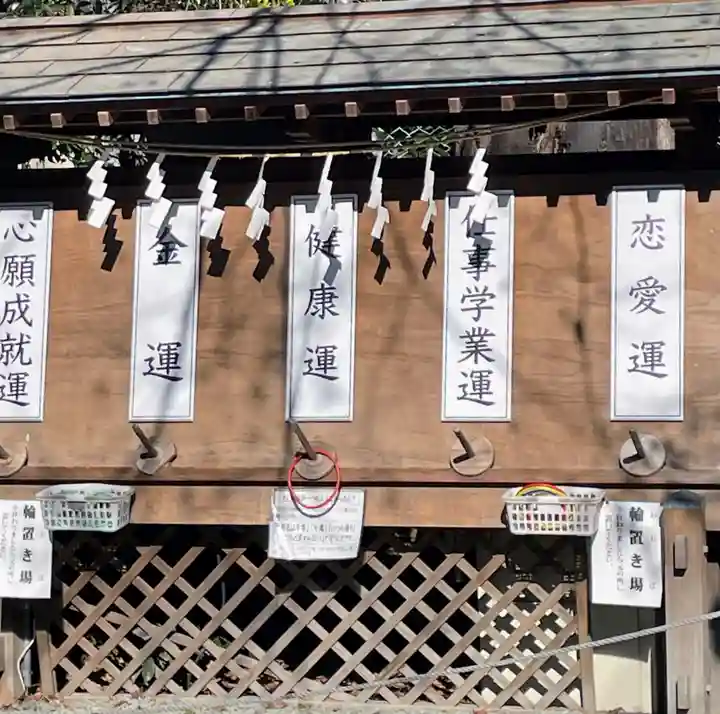 心願成就運
金運
健康運
仕事学業運
恋愛運
輪置き場
輪置き場